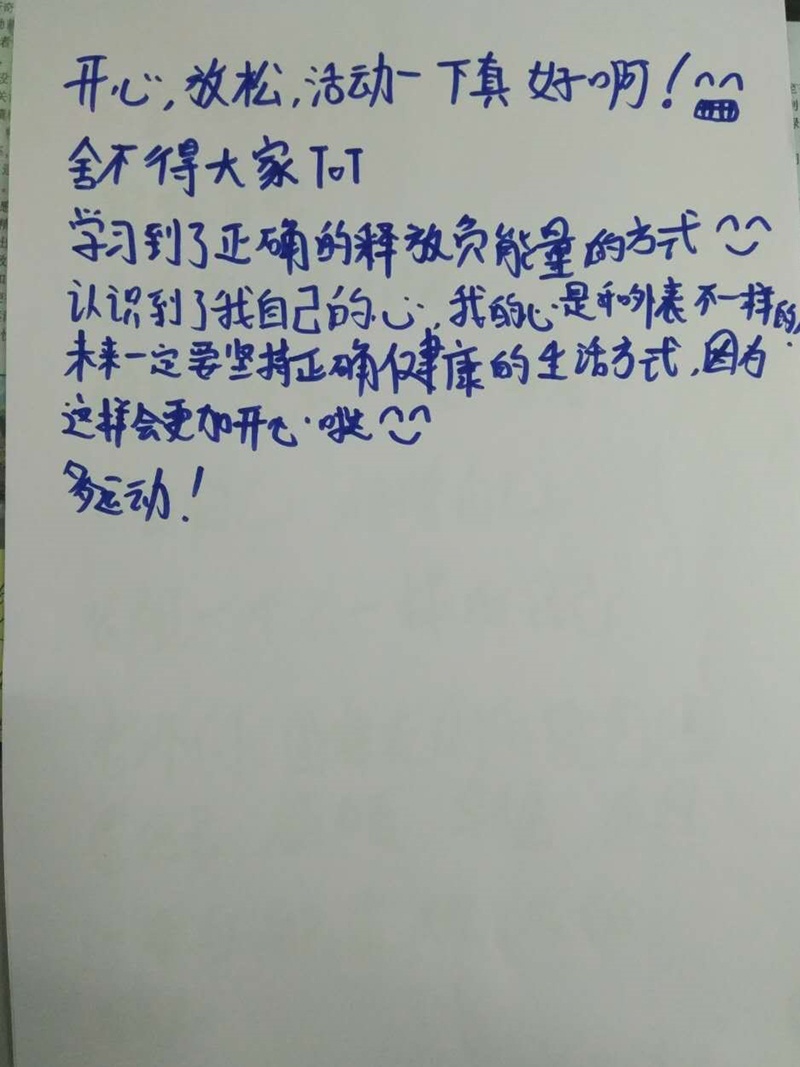 开心,放松,活动一下真好啊!^^
舍不得大家ToT
学习到了正确的释放负能量的方式^‿^
认识到了我自己的心,我的心是和外表不一样的,
未来一定要坚持正确健康的生活方式,因为
这样会更加开心哦^‿^
多运动!